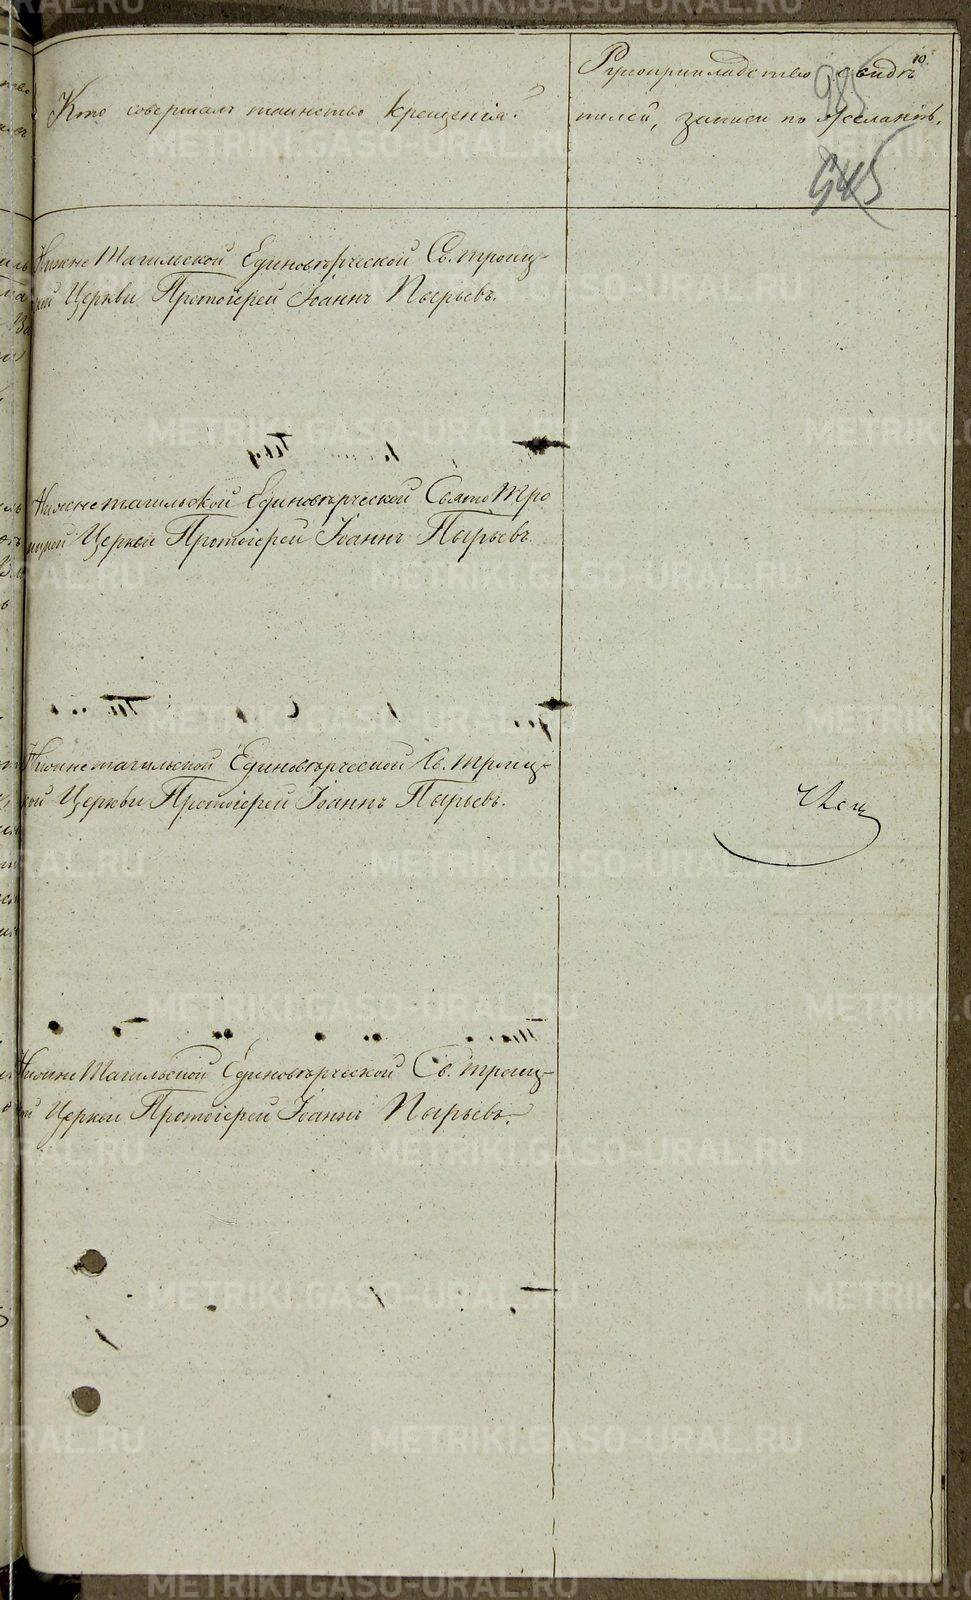 Кто совершалъ таинство крещенія?
Рукоприкладство свидѣ
телей, записи по желанію.
10.
985
945
Нижне Тагильской Единовѣрческой Св. Троиц-
кой Церкви Протоіерей Іоаннъ Пырьевъ.
Нижнетагильской Единовѣрческой Свято Тро
ицкой Церкви Протоіерей Іоаннъ Пырьевъ.
Нижнетагильской Единовѣрческой Св. Троиц-
кой Церкви Протоіерей Іоаннъ Пырьевъ.
Нижне Тагильской Единовѣрческой Св. Троиц-
кой Церкви Протоіерей Іоаннъ Пырьевъ.
METRIKI.GASO-URAL.RU